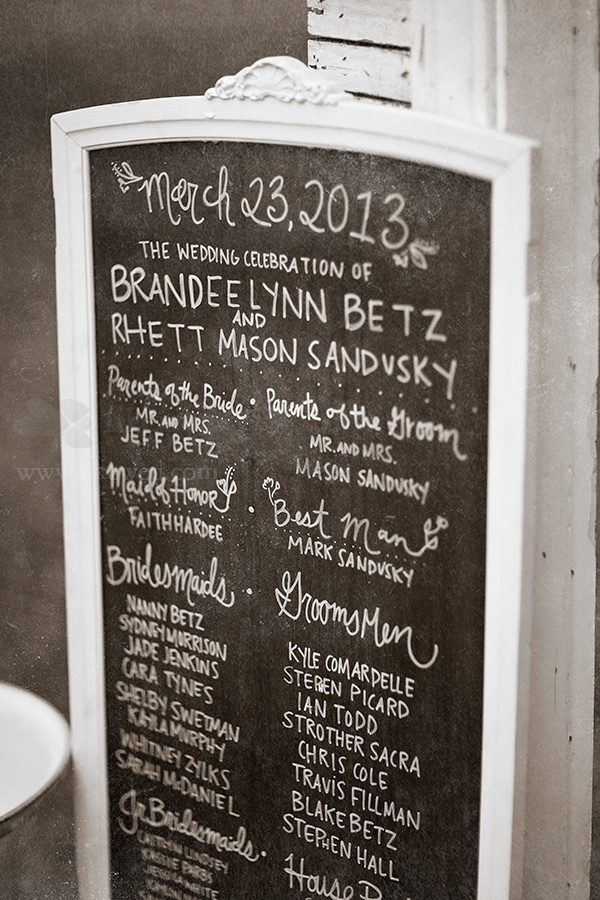 March 23, 2013
THE WEDDING CELEBRATION OF
BRANDEE LYNN BETZ
AND
RHETT MASON SANDUSKY
Parents of the Bride
MR. AND MRS.
JEFF BETZ
Parents of the Groom
MR. AND MRS.
MASON SANDUSKY
Maid of Honor
FAITH HARDEE
Best Man
MARK SANDUSKY
Bridesmaids
NANNY BETZ
SYDNEY MORRISON
JADE JENKINS
CARA TYNES
SHELBY SWETMAN
KAYLA MURPHY
WHITNEY ZYLKS
SARAH McDANIEL
GroomsMen
KYLE COMARDELLE
STEPHEN PICARD
IAN TODD
STROTHER SACRA
CHRIS COLE
TRAVIS FILLMAN
BLAKE BETZ
STEPHEN HALL
Jr Bridesmaids
CAITLYN LINDSEY
House